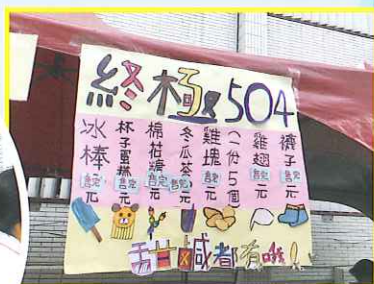 終極504
冰棒 售完 元
杯子蛋糕 售完 元
棉花糖 售完 元
冬瓜茶 售完 元
雞塊 售完 元
(一份5個
雞翅 售完 元
褲子 售完 元
甜鹹都有哦!